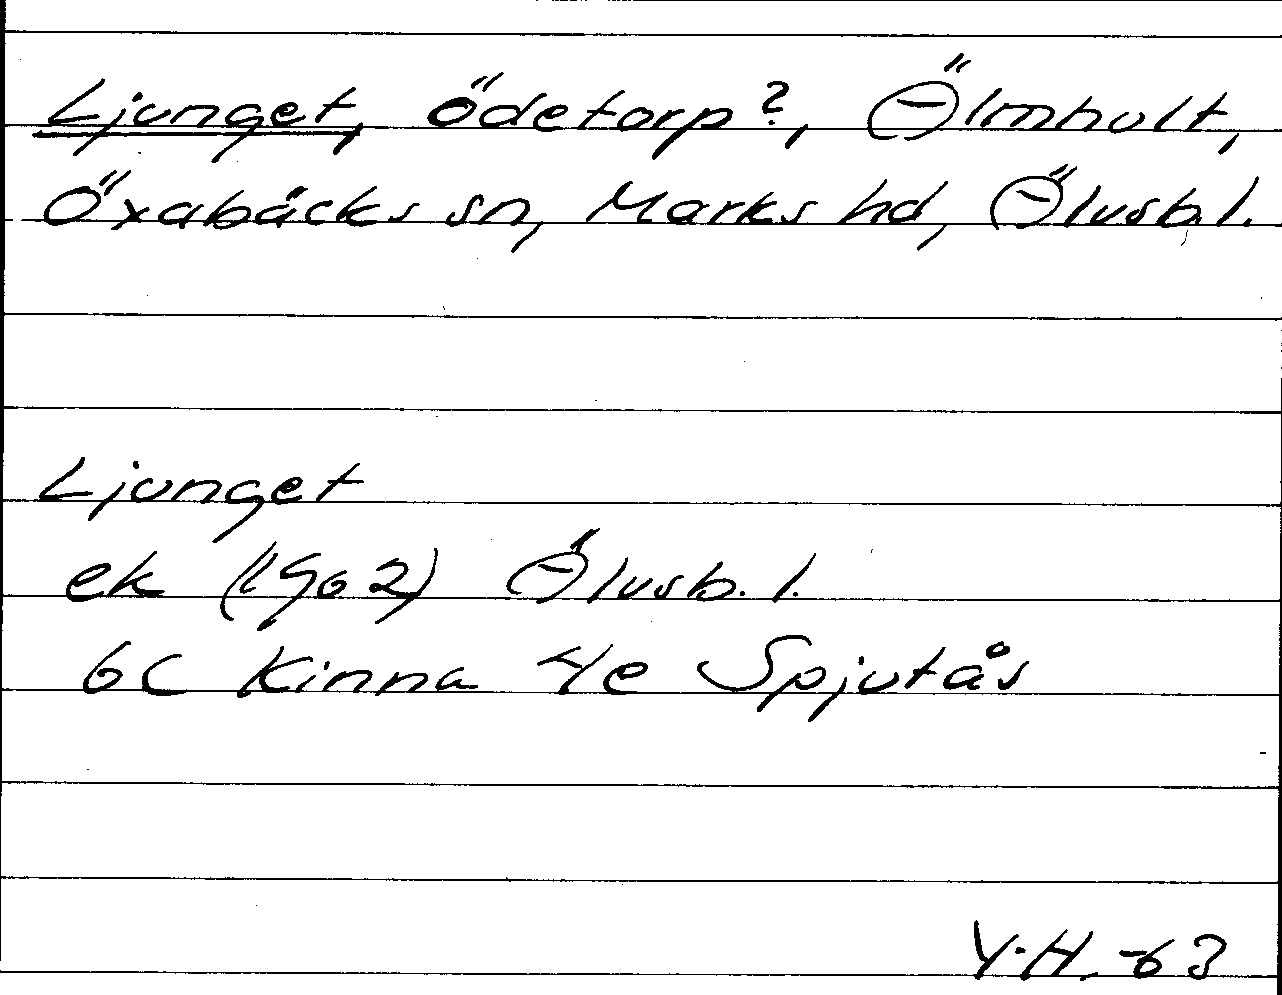 Ljunget, ödetorp?, Älmhult,
Öxabäcks sn, Marks hd, Älvsb. l.
Ljunget
ek (1962) Älvsb. l.
6C Kinna 4e Spjutås
Y.H. -63